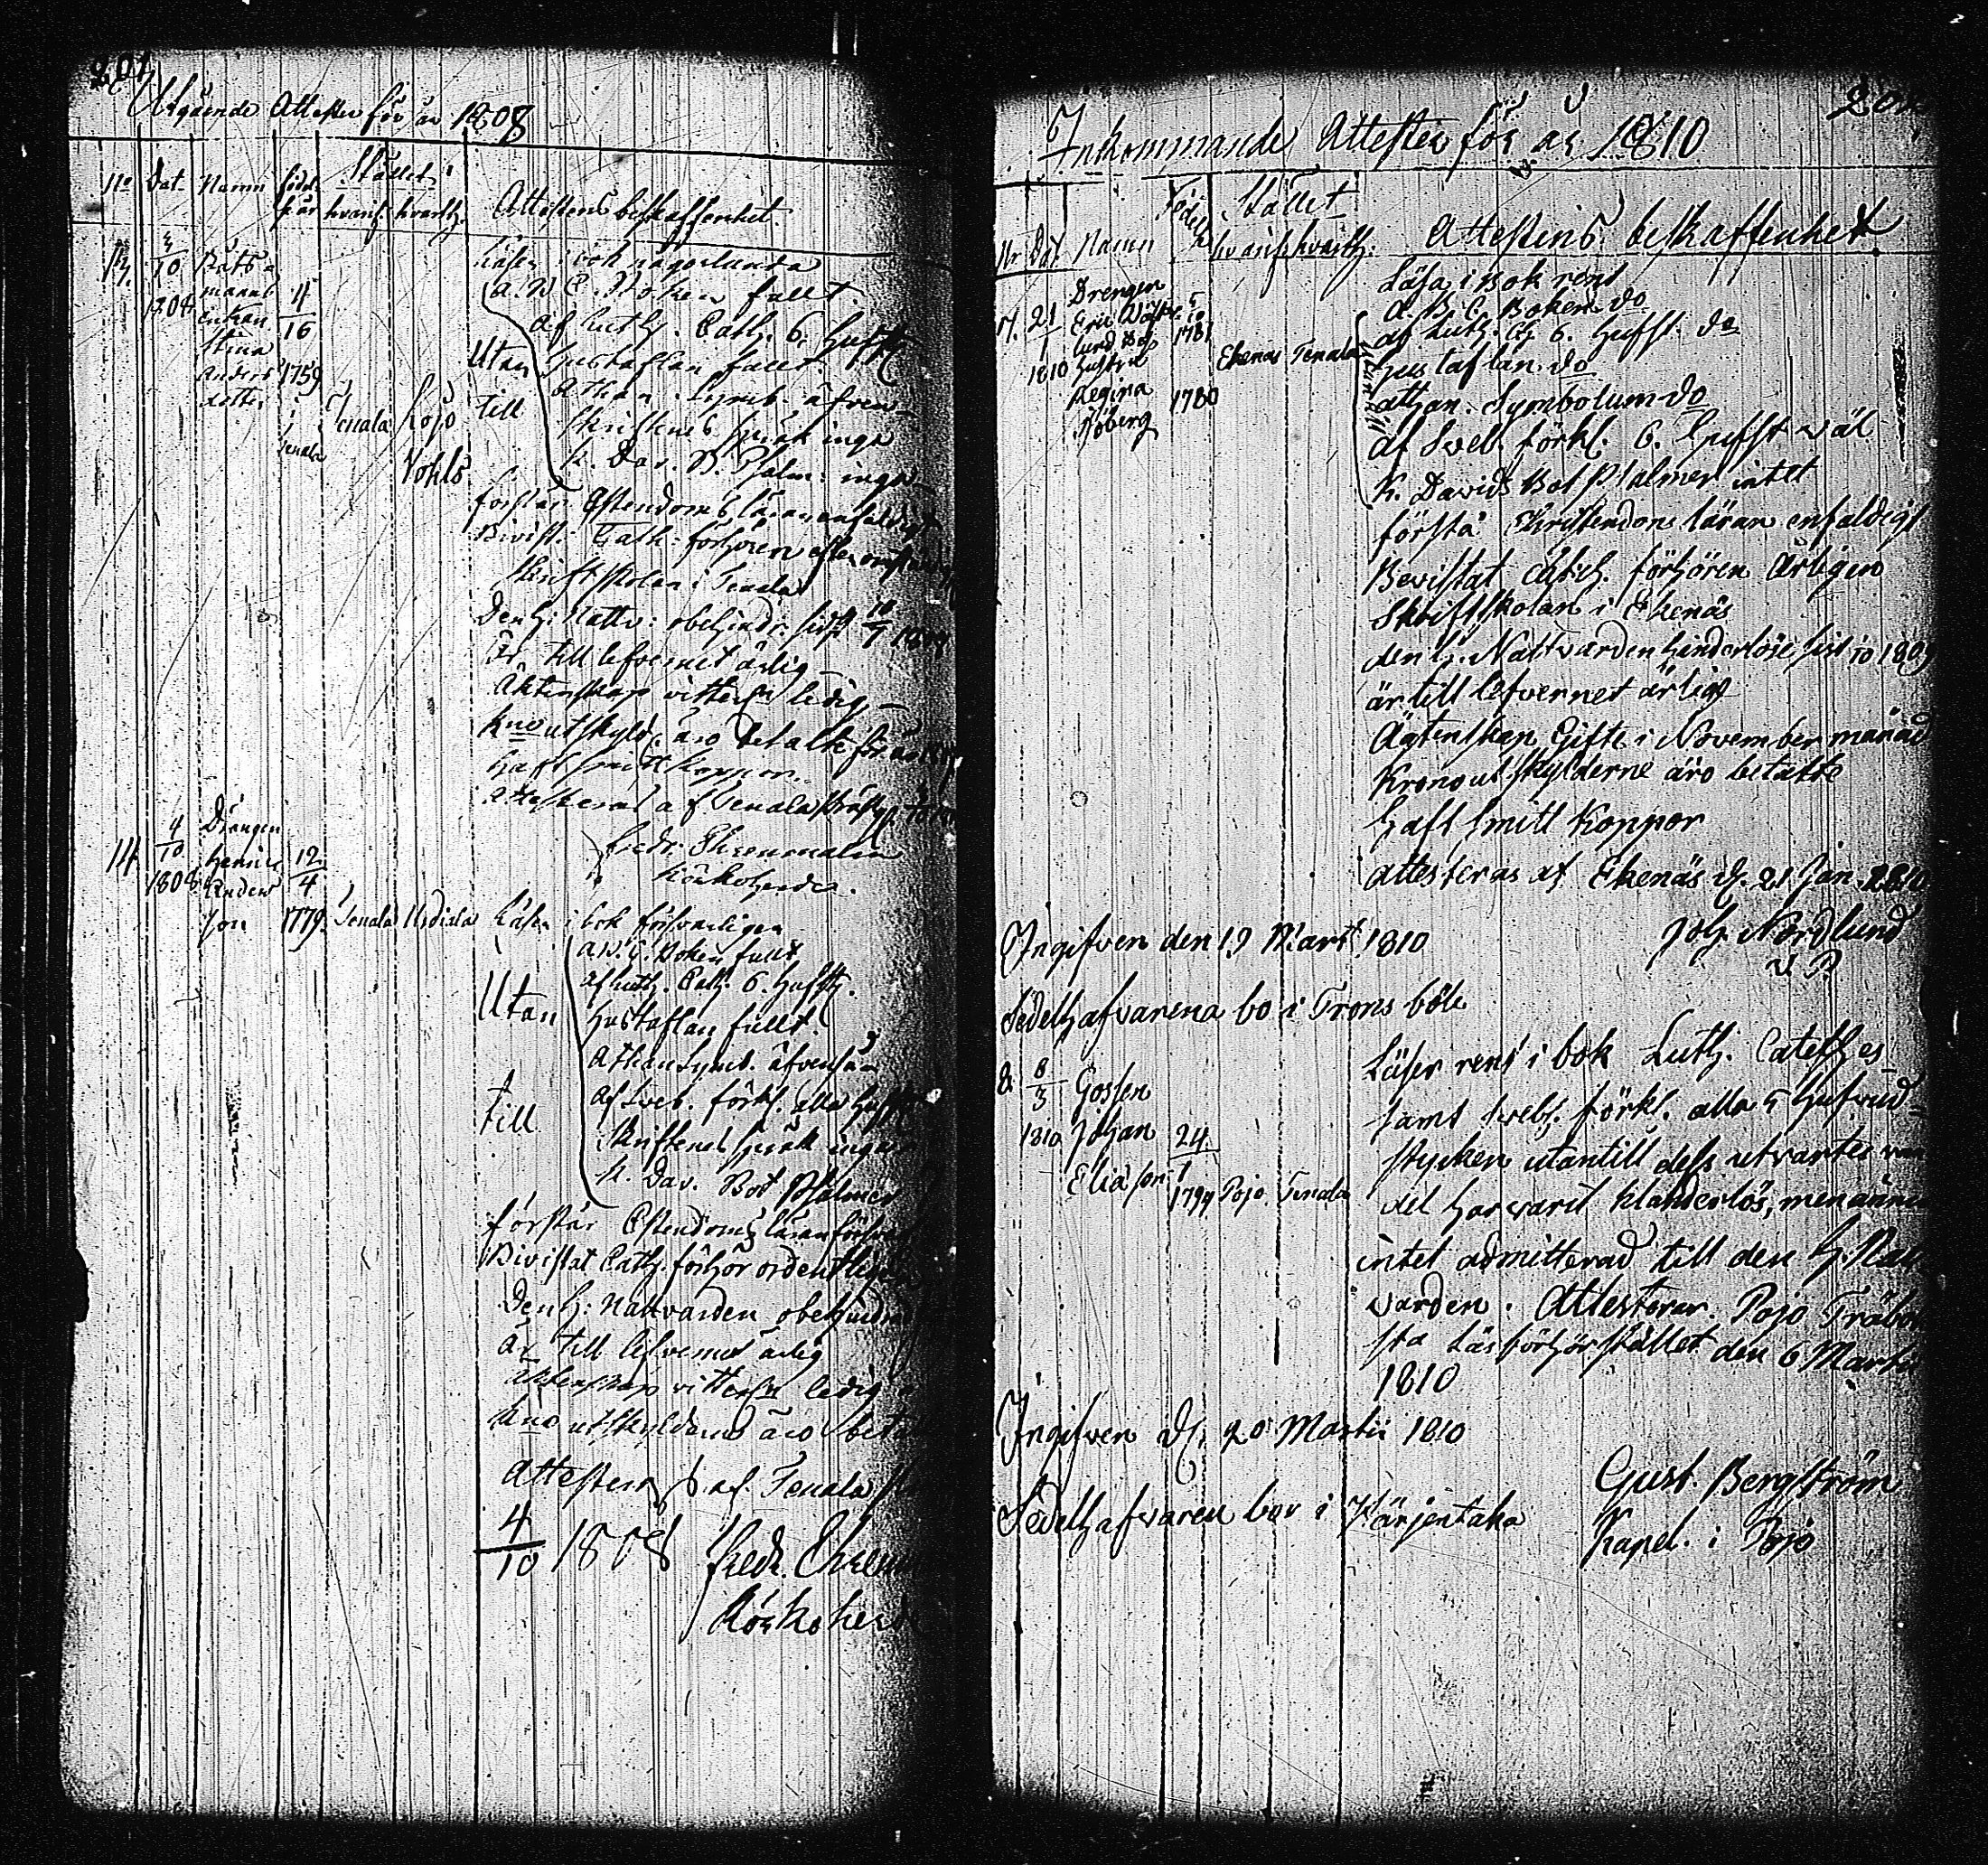 201
Utgående Attester för år 1808
No Dat. Namn födel. Stället
s: år hvarif. hvarth. Attestens beskaffenhet.
13. 3/10 1808 Båts-
manns
enkan
Stina
Anders
dotter
4/16 1759 i Tenala
Tenala Lojo
Vohls
Läser i bok någorlunda
Utan till
A. B. C. Boken fullt
af Luth. Cath. 6. Hufst
Hustaflan fullt.
Athan. Symb. äfven
Skriftenes språk inga
K. Dav. B. Psalm: inga
förstår Christendoms läran enfaldigt
Bivist. Cath. förhören
Skriftskolan i Tenala
Den H. Nattv: obehindr. sidst
Är till lefvernet ärlig
Äktenskap vitterl. ledig
Kro utskyld. äro betalte för
Haft smittkoppor.
Attesteras af Tenala
Fredr. Ehrenmalm
Körkoherde.
14 4/10 1808 Drengen
Henric
Anders
son
12/4 1779. Tenala Urdiala
Läser i bok försvarligen
Utan till
A. B. C. Boken fullt
af Luth. Cath. 6. Hufst.
Hustaflan fullt.
Athan Symb. äfvensån
af Sveb. förkl. alla
Skriftenes språk inga
K. Dav. Bot Psalmer
förstår Christendoms läran
Bivistat Cath. förhör ordentligen
Den H: Nattvarden obehindr
är till lefvernet ärlig
äktenskap vitterl. ledig
Kro utskylderne äro betal
Attesteras af Tenala
4/10 1808 Fredr. Ehrenm
Körkoherd
Inkommande Attester för år 1810
Nr Dat Namn Födels Stället
hvarif. hvarth. Attestens beskaffenhet
7. 21/1 1810 Drengen
Eric Wäst-
lund och
Hustru
Regina
Sjöberg
5/10 1781
1780
Ekenäs Tenala
Läsa i Bok rent
A. B. C. Boken do
af Luth. C. 6. Hufst. do
Hustaflan do
Athan. Symbolum do
af Sveb. förkl. 6. Hufst väl
K. Davids Bot Psalmer intet
förstå Christendoms läran enfaldigt
Bevistat Catech. förhören Årligen
Skriftskolan i Ekenäs
den H. Nattvarden hinderlöse sist
är till lefvernet ärligt
Ägtenskap Gifte i November månad
Kronoutskylderne äro betalte
Haft smitt Koppor
attesteras af Ekenäs d. 21 Jan. 1810
Joh. Nordlund
V P
Ingifven den 19 Mart. 1810
Sedelhafvarena bo i Trons böle
8. 6/3 1810 Gossen
Johan
Eliasson
24/1 1794 Pojo Tenala
Läser rent i bok Luth. Cateches
samt Sveb. förkl. alla 5 Hufvud-
stycken utantill dess utvartes van-
del har varit klanderlös, men ännu
intet admitterad till den H. Natt
varden. Attesterar Pojo Träbol
sta Läsförhörstället den 6 Martii
1810
Gust. Bergström
Kapel. i Pojo
Ingifven d. 20 Martii 1810
Sedelhafvaren bor i Härjentaka